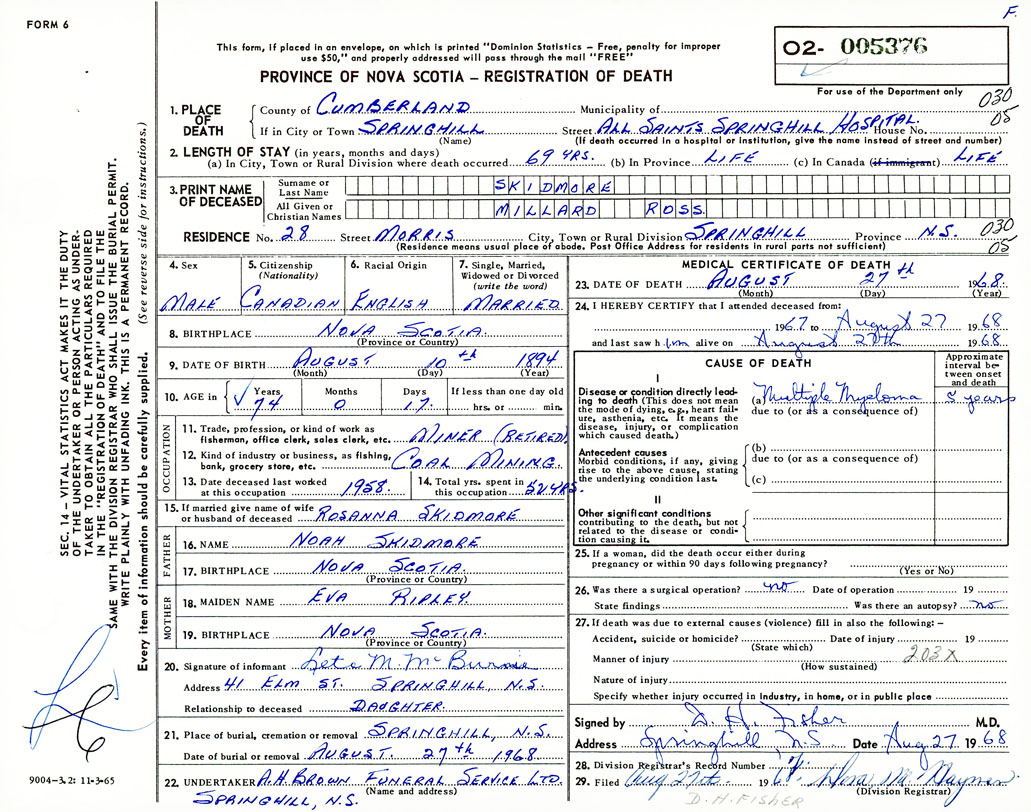 F.
FORM 6
This form, if placed in an envelope, on which is printed "Dominion Statistics – Free, penalty for improper
use $50," and properly addressed will pass through the mail "FREE"
PROVINCE OF NOVA SCOTIA – REGISTRATION OF DEATH
02- 005376
For use of the Department only
SEC. 14 – VITAL STATISTICS ACT MAKES IT THE DUTY
OF THE UNDERTAKER OR PERSON ACTING AS UNDER-
TAKER TO OBTAIN ALL THE PARTICULARS REQUIRED
IN THE "REGISTRATION OF DEATH" AND TO FILE THE
SAME WITH THE DIVISION REGISTRAR WHO SHALL ISSUE THE BURIAL PERMIT.
WRITE PLAINLY WITH UNFADING INK. THIS IS A PERMANENT RECORD.
Every item of information should be carefully supplied. (See reverse side for instructions.)
1. PLACE OF DEATH County of CUMBERLAND Municipality of 030
05
If in City or Town SPRINGHILL Street ALL SAINTS SPRINGHILL HOSPITAL. House No.
(Name) (If death occurred in a hospital or institution, give the name instead of street and number)
2. LENGTH OF STAY (in years, months and days)
(a) In City, Town or Rural Division where death occurred 69 YRS. (b) In Province LIFE (c) In Canada (if immigrant) LIFE
3. PRINT NAME OF DECEASED Surname or Last Name SKIDMORE
All Given or Christian Names MILLARD ROSS.
RESIDENCE No. 28 Street MORRIS City, Town or Rural Division SPRINGHILL Province N.S. 030
05
(Residence means usual place of abode. Post Office Address for residents in rural parts not sufficient)
4. Sex MALE
5. Citizenship (Nationality) CANADIAN
6. Racial Origin ENGLISH
7. Single, Married, Widowed or Divorced (write the word) MARRIED.
8. BIRTHPLACE NOVA SCOTIA.
(Province or Country)
9. DATE OF BIRTH AUGUST 10th 1894
(Month) (Day) (Year)
10. AGE in Years 74 Months 0 Days 17. If less than one day old hrs. or min.
OCCUPATION
11. Trade, profession, or kind of work as fisherman, office clerk, sales clerk, etc. MINER (RETIRED)
12. Kind of industry or business, as fishing, bank, grocery store, etc. COAL MINING.
13. Date deceased last worked at this occupation 1958.
14. Total yrs. spent in this occupation 52 YRS.
15. If married give name of wife or husband of deceased ROSANNA SKIDMORE
FATHER
16. NAME NOAH SKIDMORE
17. BIRTHPLACE NOVA SCOTIA.
(Province or Country)
MOTHER
18. MAIDEN NAME EVA RIPLEY.
19. BIRTHPLACE NOVA SCOTIA.
(Province or Country)
20. Signature of informant Leta M. McBurnie
Address 41 ELM ST. SPRINGHILL, N.S.
Relationship to deceased DAUGHTER.
21. Place of burial, cremation or removal SPRINGHILL, N.S.
Date of burial or removal AUGUST. 27th 1968.
22. UNDERTAKER A.H. BROWN FUNERAL SERVICE LTD.
(Name and address)
SPRINGHILL, N.S.
9004–3.2: 11-3-65
MEDICAL CERTIFICATE OF DEATH
23. DATE OF DEATH AUGUST 27th 1968.
(Month) (Day) (Year)
24. I HEREBY CERTIFY that I attended deceased from:
1967 to August 27 1968
and last saw him alive on August 27th 1968
CAUSE OF DEATH
Approximate interval between onset and death
I
Disease or condition directly leading to death (This does not mean the mode of dying, e.g., heart failure, asthenia, etc. It means the disease, injury, or complication which caused death.)
(a) Multiple Myeloma 5 years
due to (or as a consequence of)
Antecedent causes
Morbid conditions, if any, giving rise to the above cause, stating the underlying condition last.
(b)
due to (or as a consequence of)
(c)
II
Other significant conditions
contributing to the death, but not related to the disease or condition causing it.
25. If a woman, did the death occur either during
pregnancy or within 90 days following pregnancy?
(Yes or No)
26. Was there a surgical operation? no Date of operation 19
State findings Was there an autopsy? no
27. If death was due to external causes (violence) fill in also the following: –
Accident, suicide or homicide? Date of injury 19
(State which)
203X
Manner of injury
(How sustained)
Nature of injury
Specify whether injury occurred in Industry, in home, or in public place
Signed by D. H. Fisher M.D.
Address Springhill N.S. Date Aug 27 1968
28. Division Registrar's Record Number
29. Filed Aug 27th 1968
(Division Registrar)
D.H. FISHER